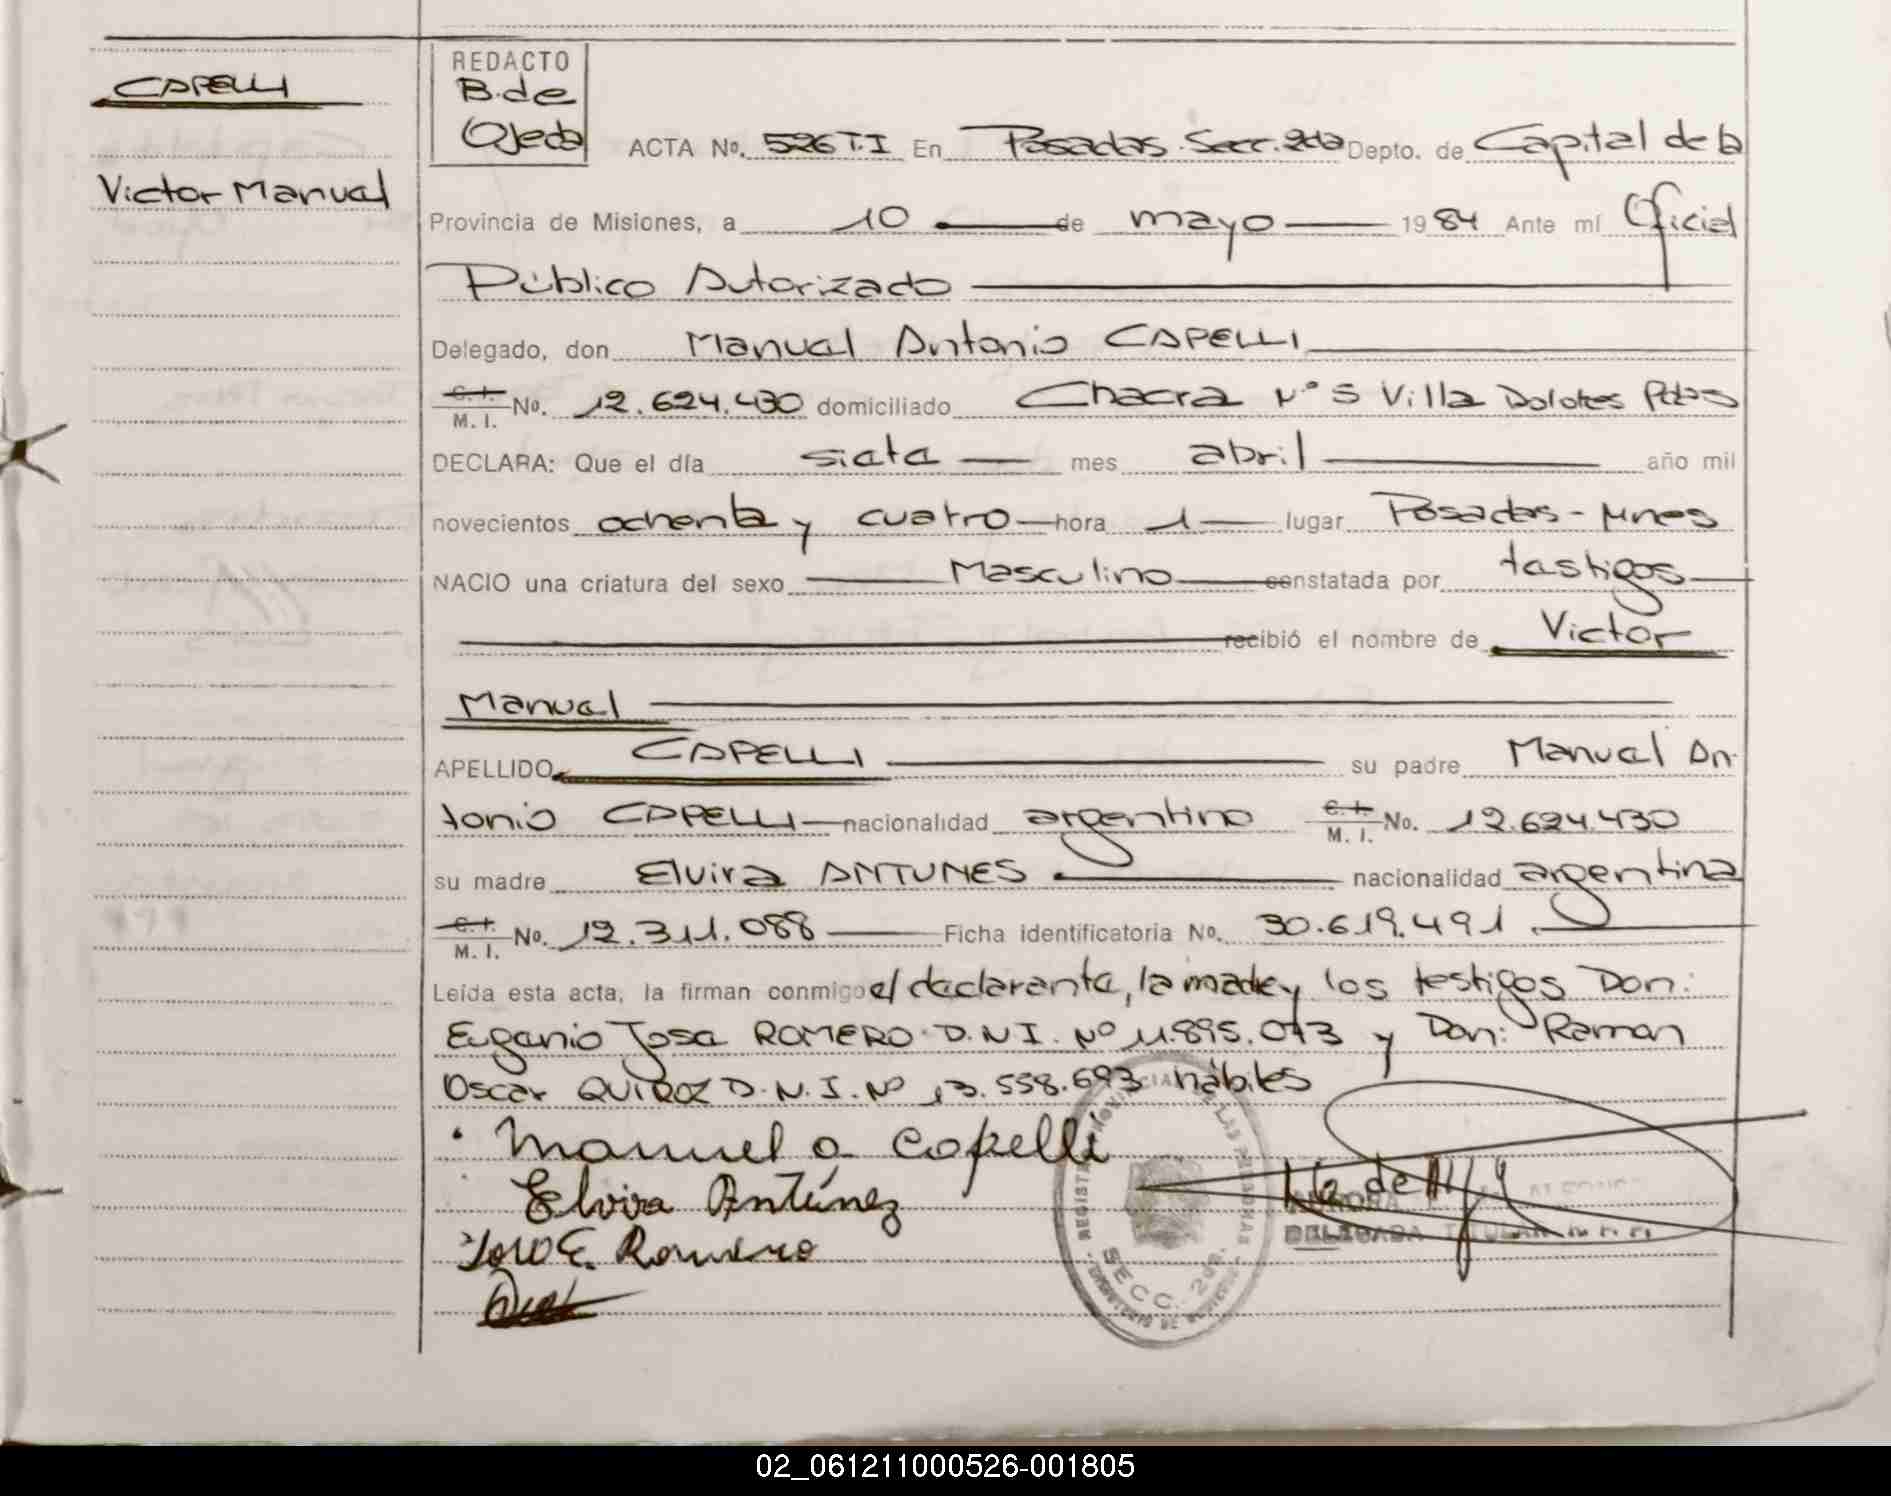 CAPELLI
Victor Manuel
REDACTO
B. de
Ojeda
ACTA No. 526 T.I En Posadas. Secc. 2da Depto. de Capital de la
Provincia de Misiones, a 10 de mayo 1984 Ante mí Oficial
Público Autorizado
Delegado, don Manuel Antonio CAPELLI
C. I.
M. I. No. 12.624.430 domiciliado Chacra Nº 5 Villa Dolores Pdas
DECLARA: Que el día siete mes abril año mil
novecientos ochenta y cuatro hora 1 lugar Posadas - Mnes
NACIO una criatura del sexo Masculino constatada por testigos
recibió el nombre de Victor
Manuel
APELLIDO CAPELLI su padre Manuel An-
tonio CAPELLI nacionalidad argentino C. I. M. I. No. 12.624.430
su madre Elvira ANTUNES nacionalidad argentina
C. I.
M. I. No. 12.311.088 Ficha identificatoria No. 30.619.491.
Leída esta acta, la firman conmigo el declarante, la madre y los testigos Don:
Eugenio Jose ROMERO D.N.I. Nº 11.895.073 y Don: Ramon
Oscar QUIROZ D.N.I. Nº 13.558.693 hábiles
Manuel a Capelli
Elvira Antúnez
José E. Romero
AURORA
DELEGADA TITULAR
SECC. 2da.
02_061211000526-001805